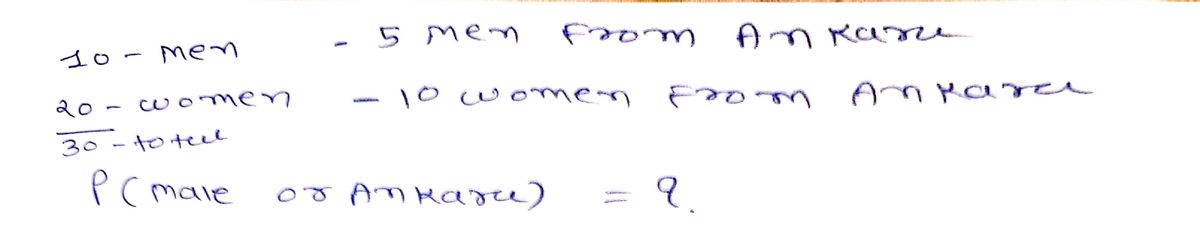 10 - men - 5 men From Ankara
20 - women - 10 women From Ankara
30 - total
P(male or Ankara) = ?